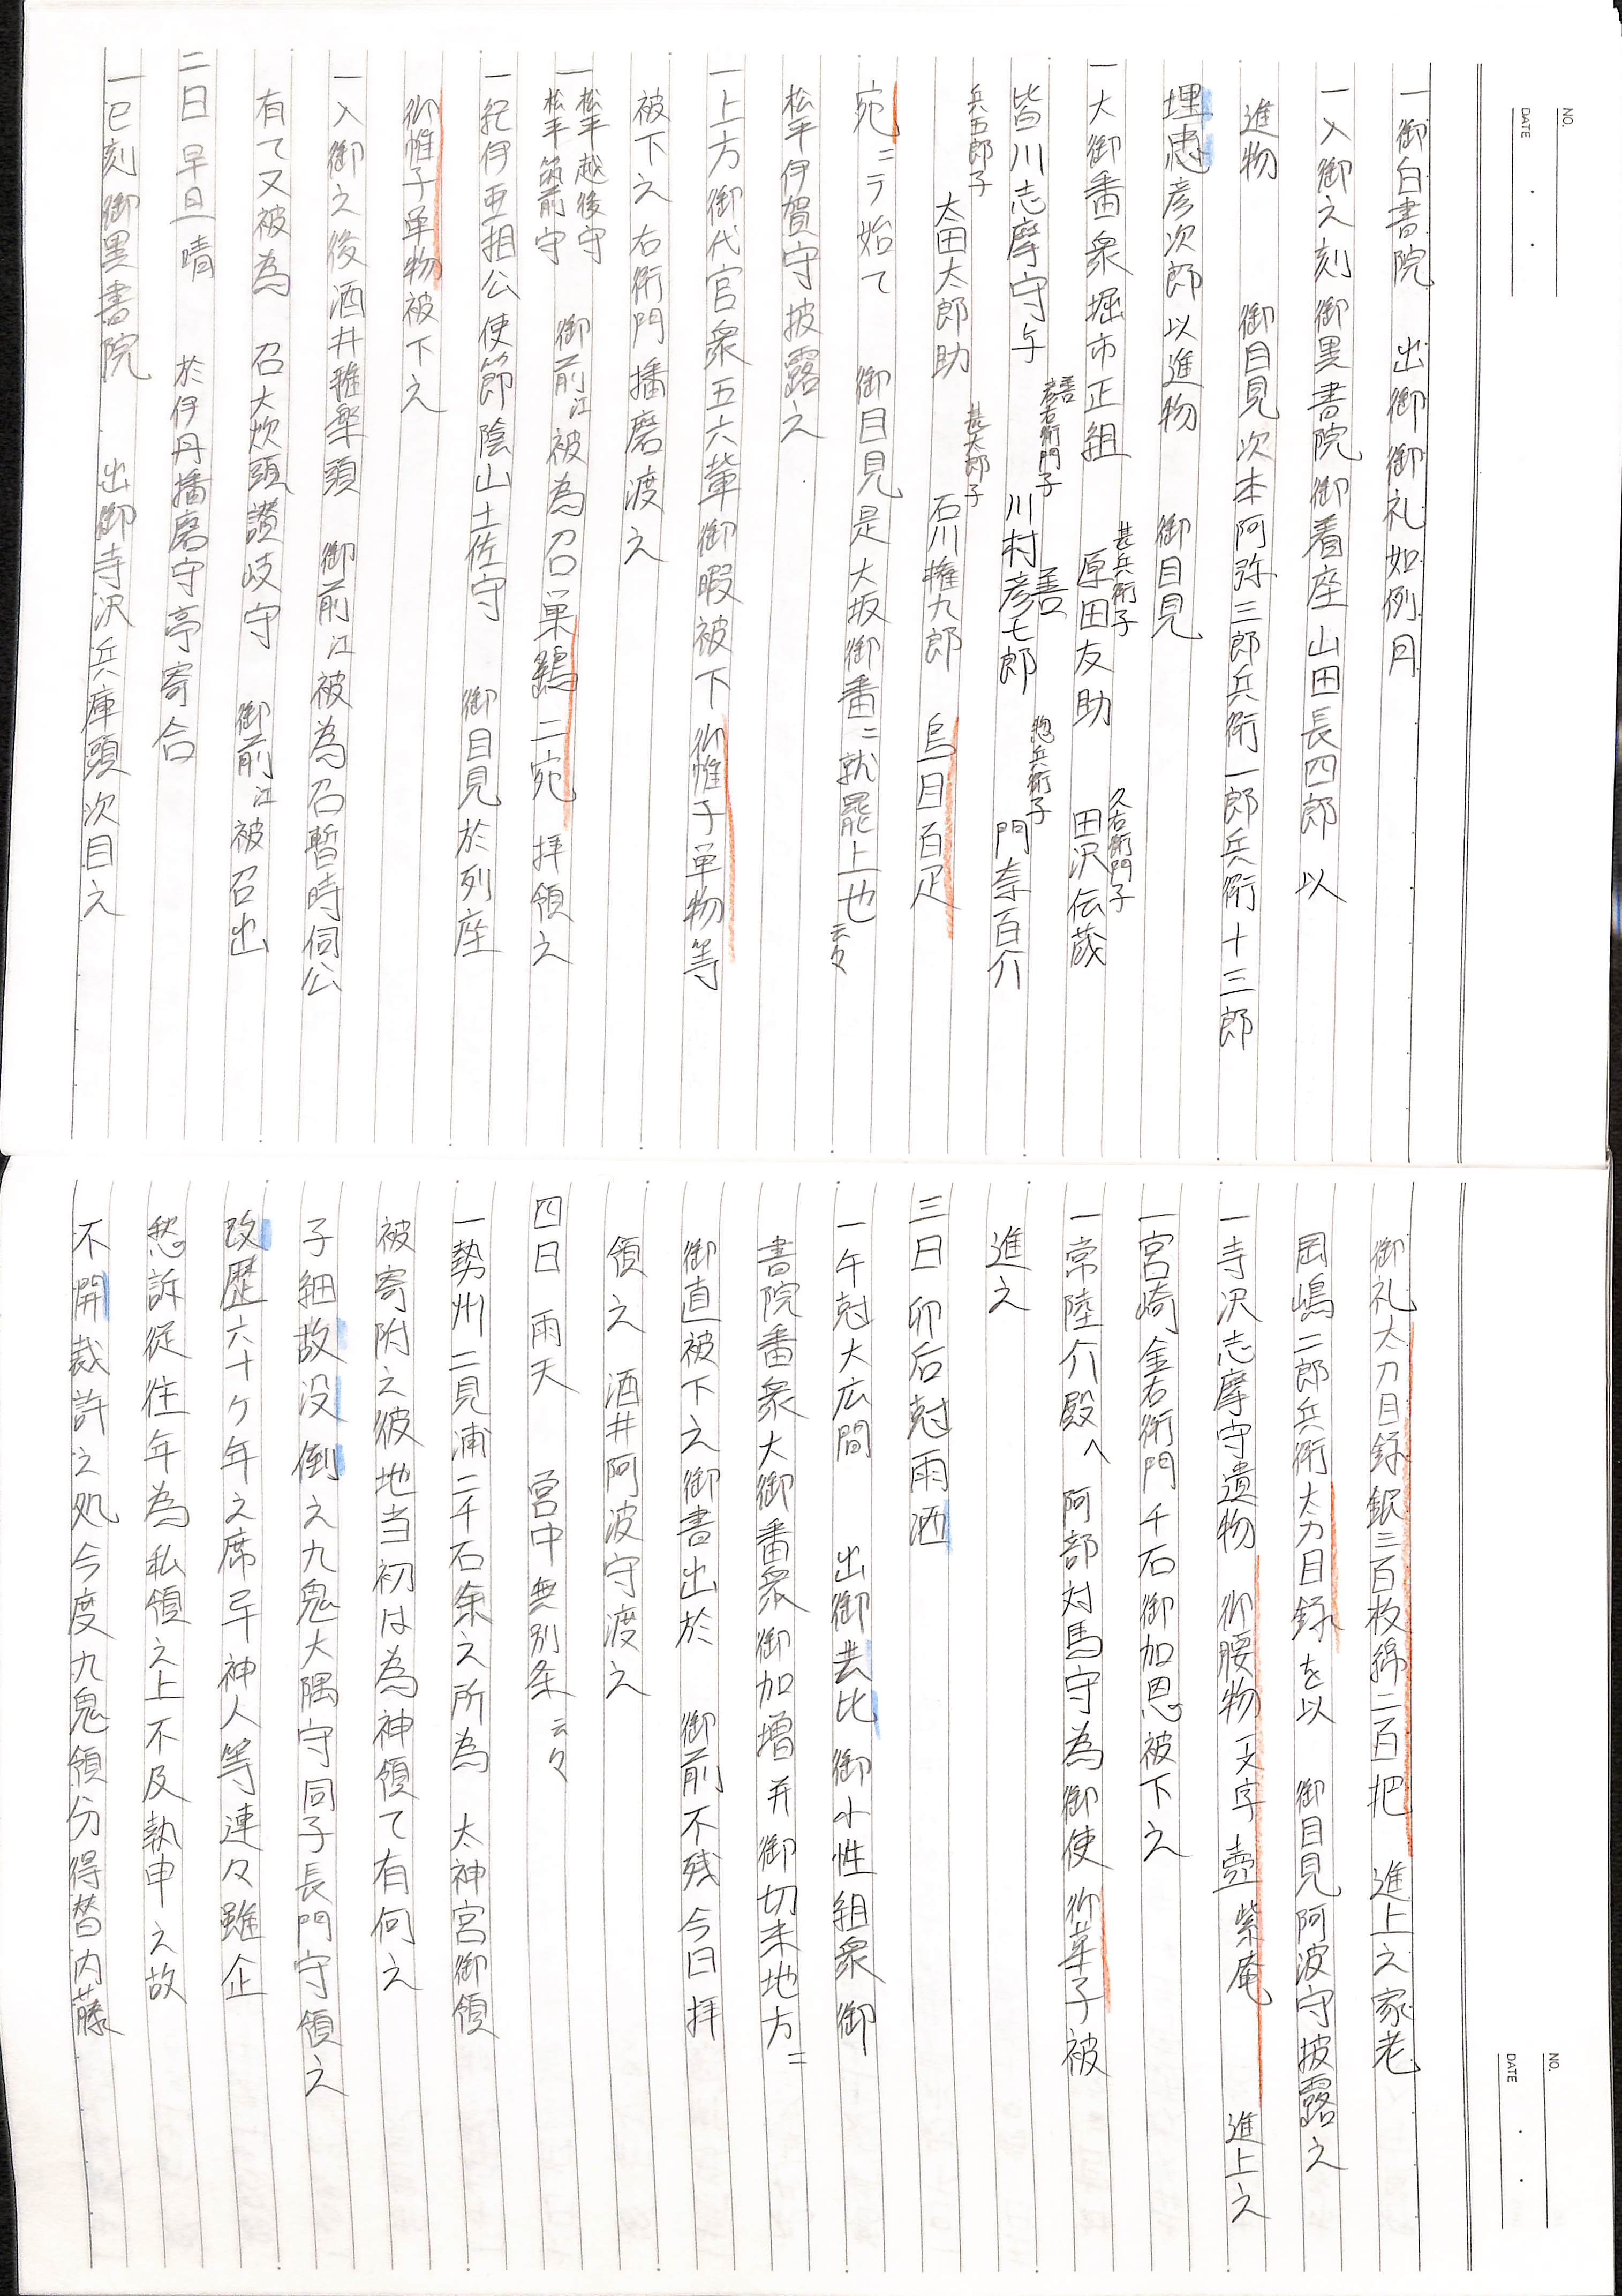 NO.
DATE
一御白書院 出御御礼如例月
一入御之刻御黒書院御着座山田長四郎以
進物 御目見次本阿弥三郎兵衛一郎兵衛十三郎
埋忠彦次郎以進物 御目見
一大御番衆堀市正組 甚兵衛子 原田友助 久右衛門子 田沢伝蔵
皆川志摩守与 右衛門子 川村彦七郎 善 惣兵衛子 門奈百介
兵五郎子 太田太郎助 甚太郎子 石川権九郎 鳥目百疋
宛ニテ始て 御目見是大坂御番ニ就罷上也云々
松平伊賀守披露之
一上方御代官衆五六輩御暇被下御帷子単物等
被下之右衛門播磨渡之
一松平越後守 松平筑前守 御前江被為召巣鷂二宛拝領之
一紀伊亜相公使節陰山土佐守 御目見於列座
御帷子単物被下之
一入御之後酒井雅楽頭 御前江被為召暫時伺公
有て又被為 召大炊頭讃岐守 御前江被召出
二日早旦晴 於伊丹播磨守亭寄合
一巳刻御黒書院 出御寺沢兵庫頭次目之
NO.
DATE
御礼太刀目録銀三百枚綿二百把 進上之家老
岡嶋二郎兵衛太刀目録を以 御目見阿波守披露之
一寺沢志摩守遺物 御腰物一文字 壺紫庵 進上之
一宮崎金右衛門千石御加恩被下之
一常陸介殿へ 阿部対馬守為御使御菓子被
進之
三日卯后尅雨洒
一午尅大広間 出御其比御小性組衆御
書院番衆大御番衆御加増并御切米地方ニ
御直被下之御書出於 御前不残今日拝
領之 酒井阿波守渡之
四日 雨天 宮中無別条云々
一勢州二見浦二千石余之所為 太神宮御領
被寄附之彼地当初は為神領て有何之
子細故没倒之九鬼大隅守同子長門守領之
改歴六十ケ年之席早神人等連々雖企
愁訴従往年為私領之上不及執申之故
不開裁許之処今度九鬼領分得替内藤